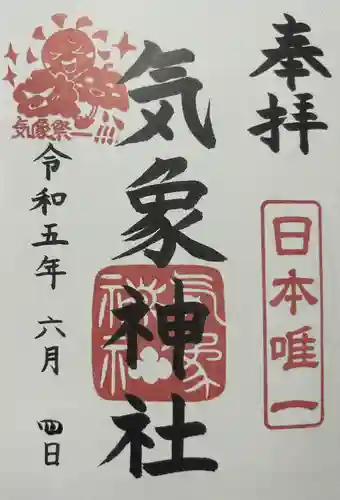 奉拝
日本唯一
気象神社
気象神社
気象祭
令和五年 六月 四日